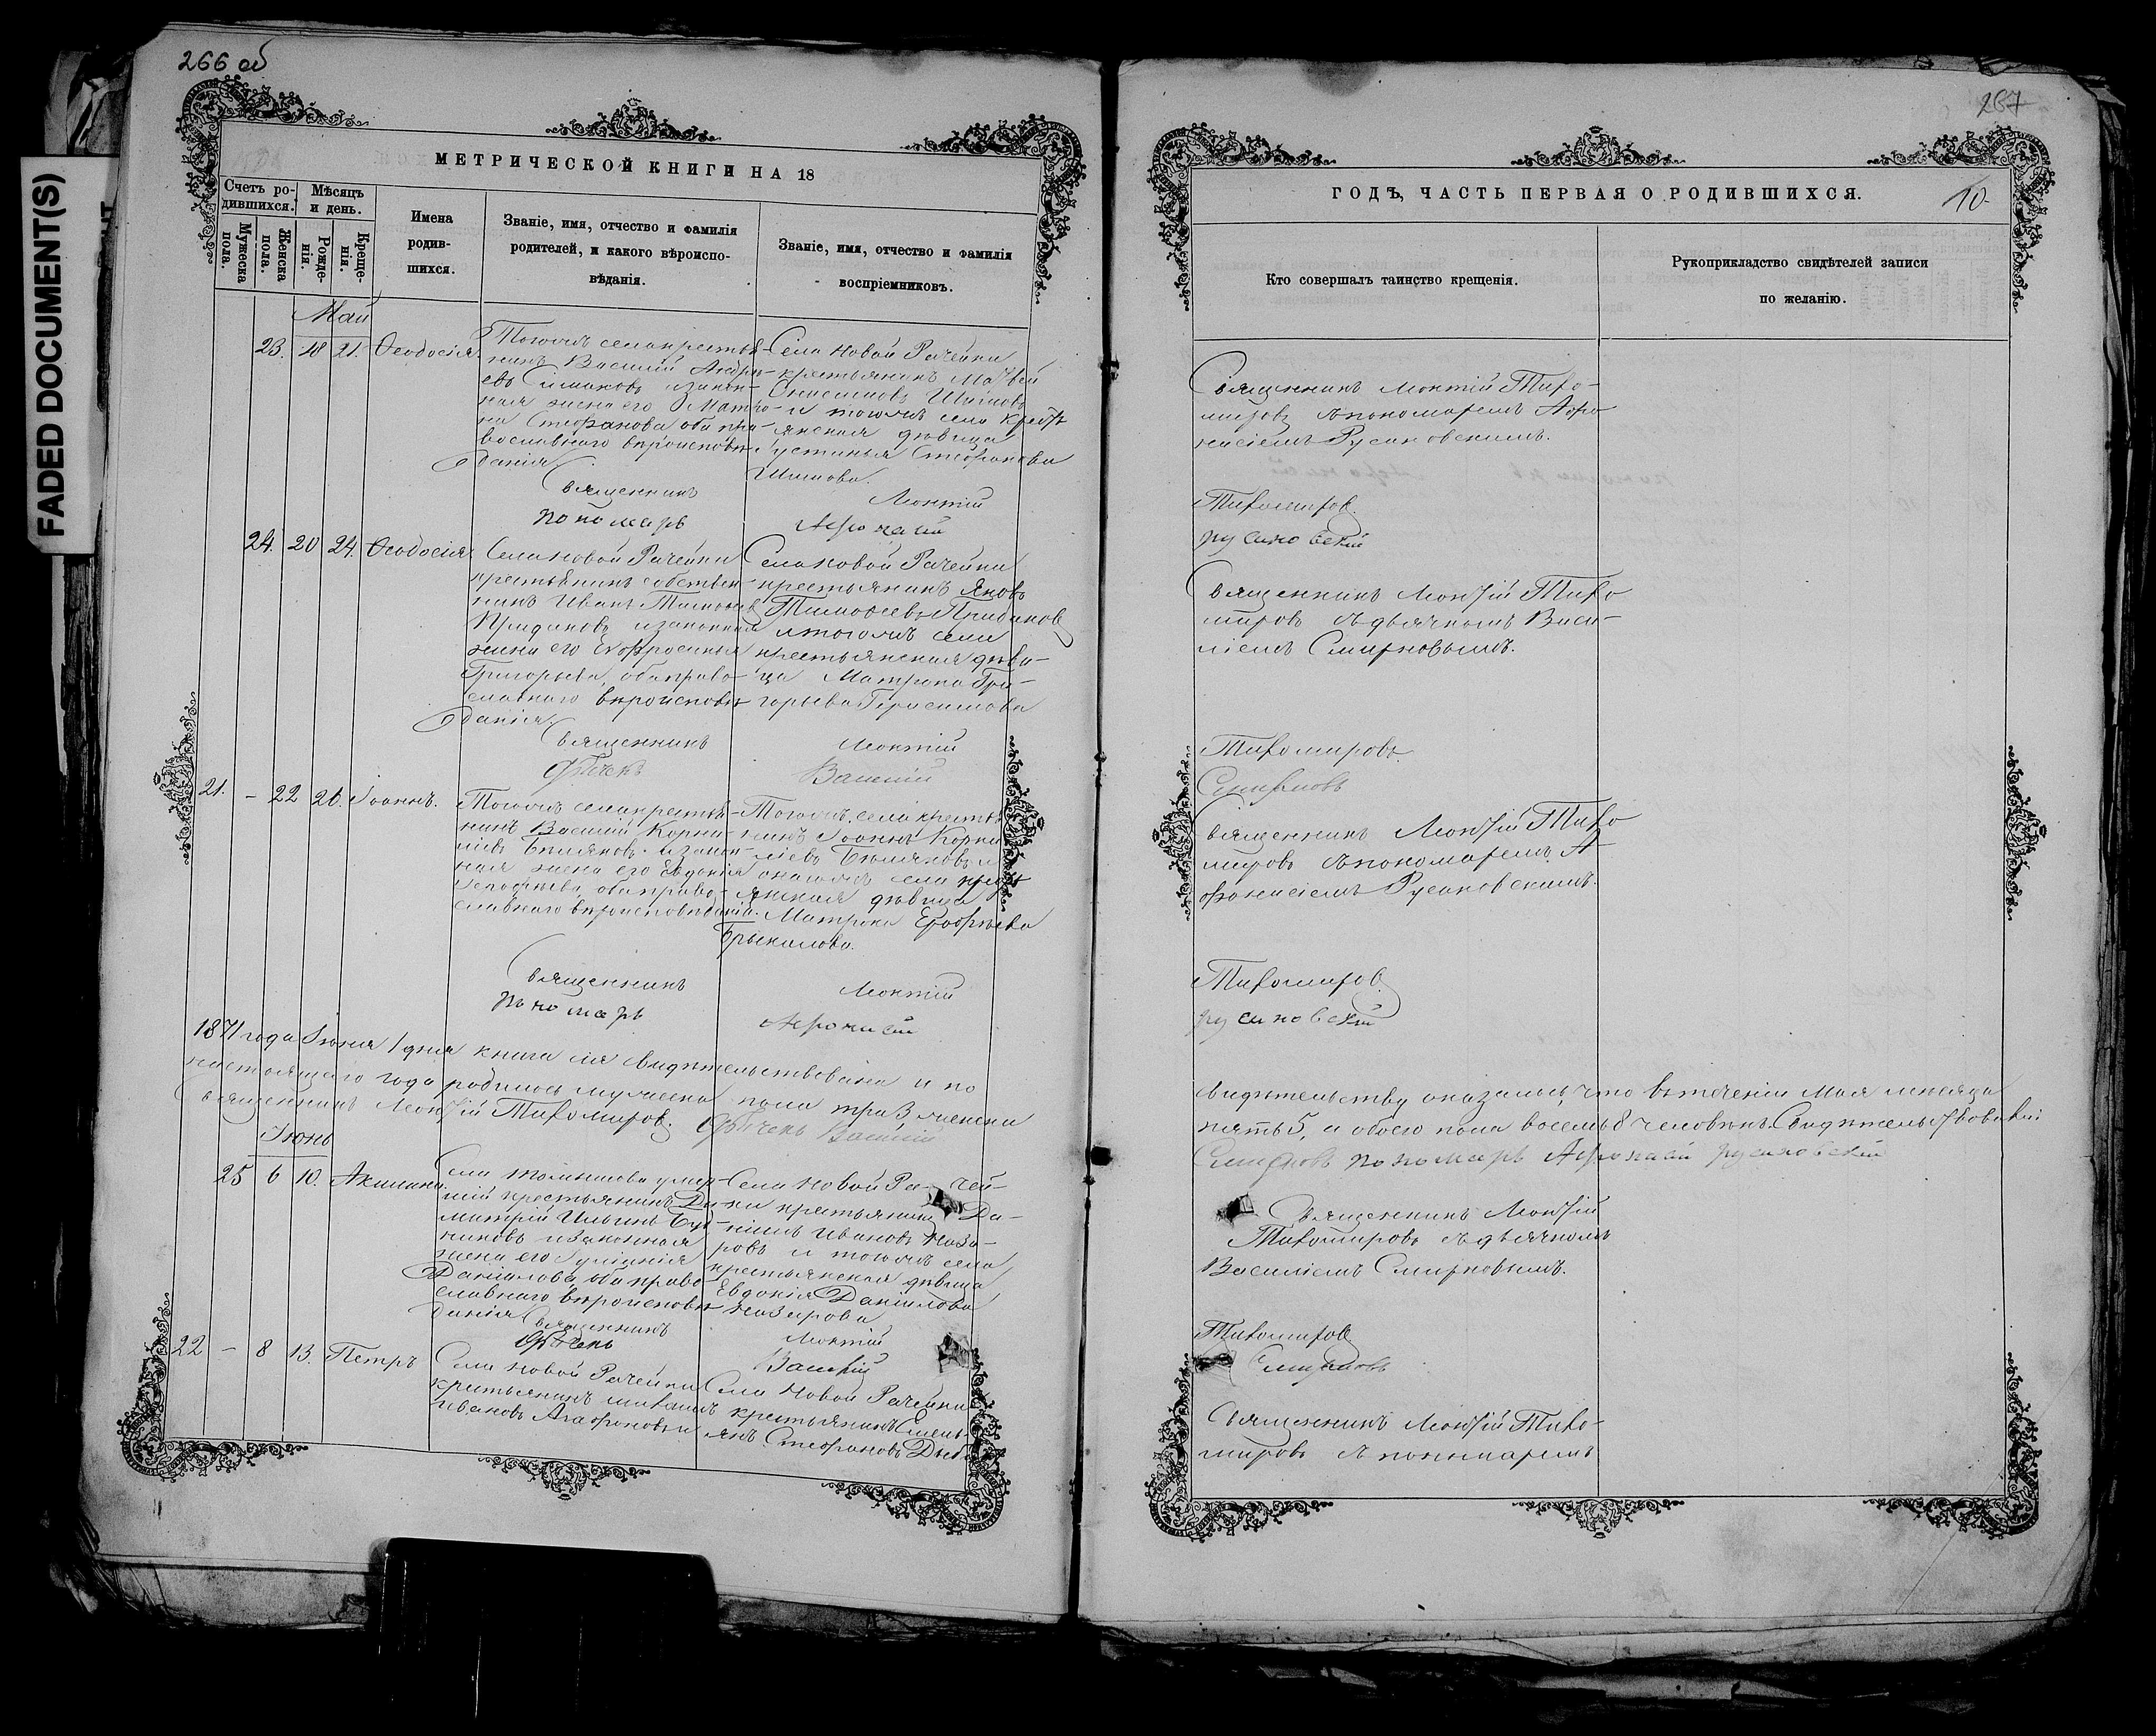 266 об
FADED DOCUMENT(S)
МЕТРИЧЕСКОЙ КНИГИ НА 18
Счетъ ро-
дившихся.
Мѣсяцъ
и день.
Мужеска
пола.
Женска
пола.
Рожде-
нія.
Креще-
нія.
Имена
родив-
шихся.
Званіе, имя, отчество и фамилія
родителей, и какого вѣроиспо-
вѣданія.
Званіе, имя, отчество и фамилія
воспріемниковъ.
Май
23. 18 21. Ѳеодосія
Тогожъ села крестья-
нинъ Василій Андре-
евъ Симаковъ и закон-
ная жена его Матро-
на Стефанова оба пра-
вославнаго вѣроисповѣ-
данія.
Села Новой Рачейки
крестьянинъ Матвей
Онисимовъ Шишовъ
и тогожъ села кресть
янская дѣвица
Устинья Стефанова
Шишова.
Священникъ Леонтій
пономарь Афонасій
24. 20 24. Ѳеодосія
Села Новой Рачейки
крестьянинъ собствен-
никъ Иванъ Тимоѳеев
Придановъ и законная
жена его Евфросинья
Григорьева, оба право-
славнаго вѣроисповѣ-
данія.
Села Новой Рачейки
крестьянинъ Яковъ
Тимоѳеевъ Придановъ
и тогожъ села
крестьянская дѣви-
ца Матрона Гри-
горьева Герасимова
Священникъ Леонтій
Дьячекъ Василій
21. – 22 26. Іоаннъ.
Тогожъ села крестья-
нинъ Василій Корни-
ліевъ Бѣляковъ и закон-
ная жена его Евдокія
оба право-
славнаго вѣроисповѣданія.
Тогожъ села крестья
нинъ Іоаннъ Корни
ліевъ Бѣляковъ и
тогожъ села кресть
янская дѣвица
Матрона
Брыкалова.
Священникъ Леонтій
пономарь Афонасій
1871 года Іюня 1 дня книга сія свидѣтельствована и по
настоящаго года родилось мужеска пола три 3 женска
Священникъ Леонтій Тихомировъ. Дьячекъ Василій
Іюнь
25 6 10. Акилина.
Села умер-
шій крестьянинъ Ди-
митрій Ильинъ
и законная
жена его Іуліанія
Даніилова, оба право-
славнаго вѣроисповѣ-
данія
Села Новой Ра-чей-
ки крестьянинъ Да-
ніилъ Ивановъ Наза-
ровъ и тогожъ села
крестьянская дѣвица
Евдокія Даніилова
Назарова
Священникъ Леонтій
Дьячекъ Василій
22 – 8 13. Петръ
Села Новой Рачейки
крестьянинъ Михаилъ
Ивановъ Агафоновъ и
Села Новой Рачейки
крестьянинъ Емель-
янъ Стефановъ
267
ГОДЪ, ЧАСТЬ ПЕРВАЯ О РОДИВШИХСЯ.
10
Кто совершалъ таинство крещенія.
Рукоприкладство свидѣтелей записи
по желанію.
Священникъ Леонтій Тихо-
мировъ съ пономаремъ Афо
насіемъ Русановскимъ.
Тихомировъ
русановский
Священникъ Леонтій Тихо
мировъ съ дьячкомъ Васи-
ліемъ Смирновымъ.
Тихомировъ.
Смирновъ
Священникъ Леонтій Тихо
мировъ съ пономаремъ А-
фонасіемъ Русановскимъ.
Тихомировъ
русановский
свидѣтельству оказалось, что въ теченіи Мая месяца
пять 5, а обоего пола восемь 8 человѣкъ. Свидѣтельствовали:
Смирновъ пономарь Афонасій русановский
Священникъ Леонтій
Тихомировъ съ дьячкомъ
Василіемъ Смирновымъ.
Тихомировъ
Смирновъ
Священникъ Леонтій Тихо-
мировъ съ пономаремъ